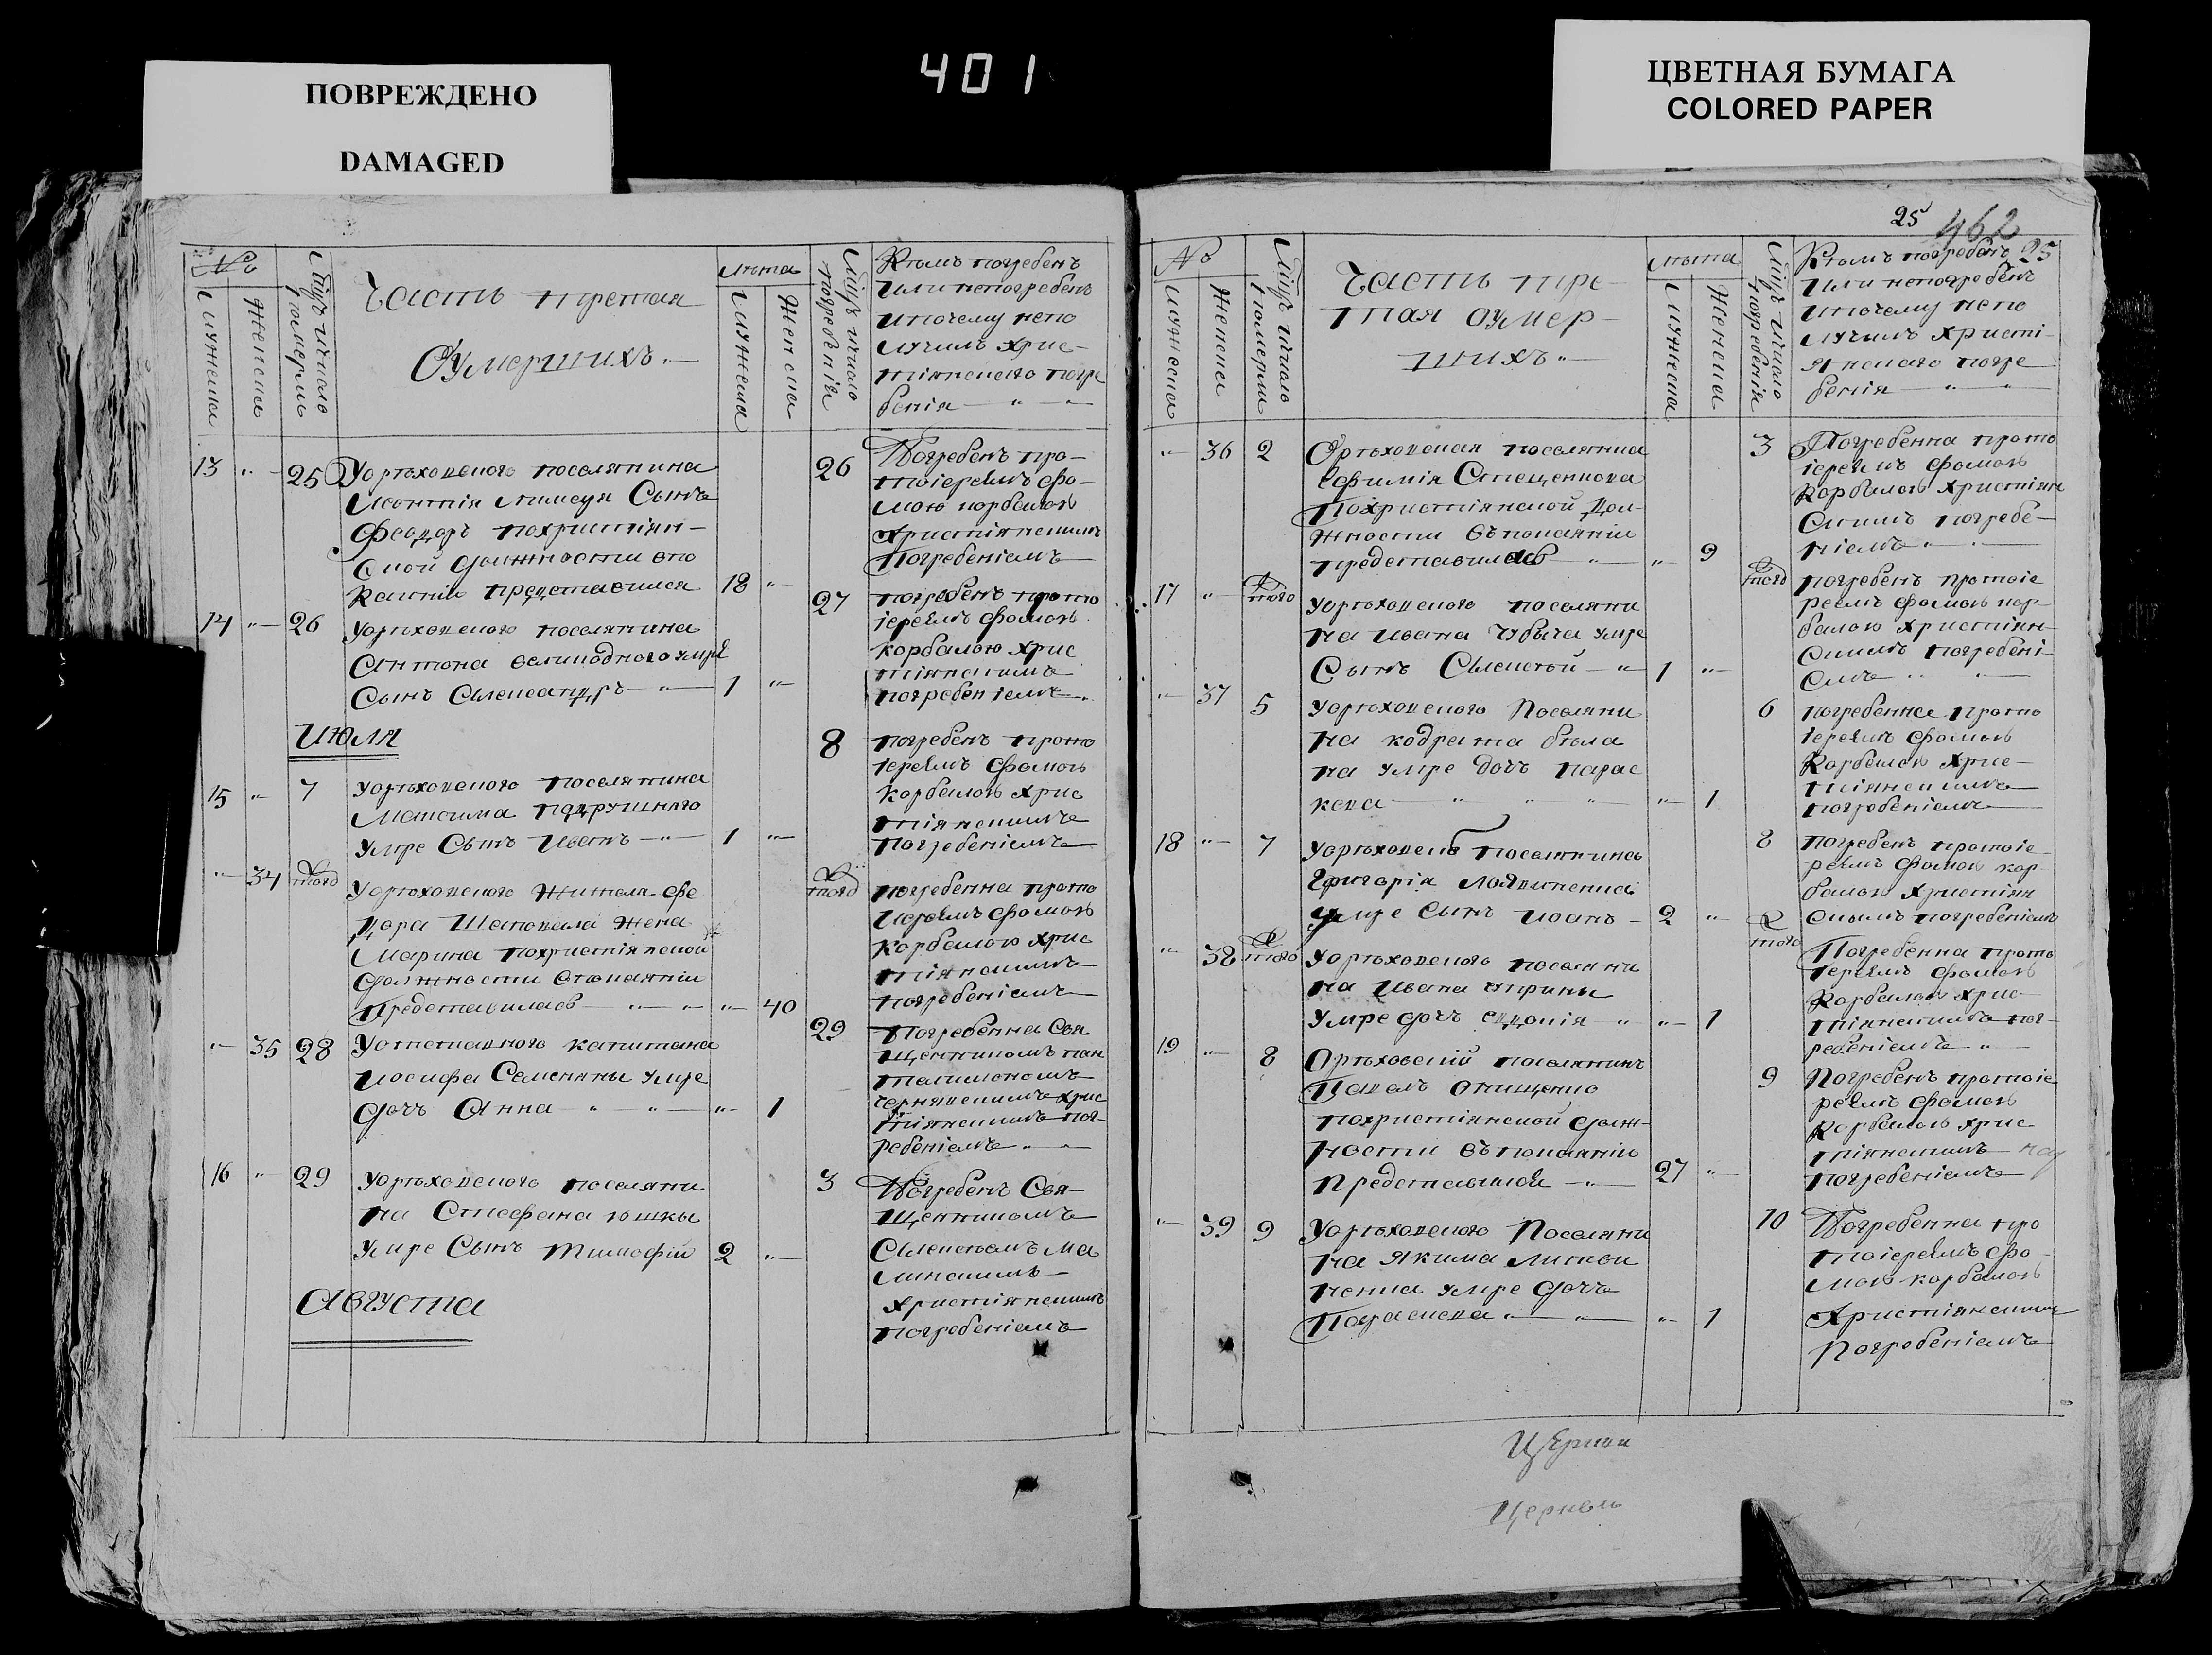 401
ПОВРЕЖДЕНО
DAMAGED
ЦВЕТНАЯ БУМАГА
COLORED PAPER
№
мужеска
женска
Мцъ и число
померли
Часть третая
Оумершихъ
Лѣта
мужеска
женска
Мцъ и число
погребенія
Кѣмъ погребенъ
или непогребенъ
и почему непо
лучилъ хрис-
тіянскаго погре
бенія
13
25
Уорѣховского поселянина
Сынъ
Феодоръ похристіян-
ской должности впо
каяніи представился
18
26
Погребенъ про-
тоіереемъ Фо-
мою Корбалою
христіянскимъ
погребеніемъ
14
26
Уорѣховского поселянина
Антона умре
Сынъ Александръ
1
27
погребенъ прото
іереемъ Фомою
Корбалою хрис
тіянскимъ
погребеніемъ
Июля
15
7
Уорѣховского поселянина
Максима
умре Сынъ Иванъ
1
8
погребенъ прото
іереемъ Фомою
Корбалою хрис
тіянскимъ
погребеніемъ
34
того
Уорѣховского жителя Фе
дора Шаповала жена
Марина похристіянской
должности впокаяніи
представилась
40
того
погребенна прото
иереемъ Фомою
Корбалою хрис
тіянскимъ
погребеніемъ
35
28
капитана
Иосифа Семеняки умре
дочъ Анна
1
29
Погребенна Свя
щенникомъ Пан
телимономъ
хрис
тіянскимъ пог-
ребеніемъ
16
29
Уорѣховского поселяни
на Стефана Юшки
умре Сынъ Тимофій
2
3
Погребенъ Свя-
щенникомъ
Алексѣемъ
христіянскимъ
погребеніемъ
Августа
25
462
№
мужеска
женска
Мцъ и число
померли
Часть тре-
тая оумер-
шихъ
лѣта
мужеска
женска
Мцъ и число
погребенія
Кѣмъ погребенъ 25
или непогребенъ
и почему непо
лучилъ христі-
янскаго погре
бенія
36
2
Орѣховская поселянка
Ефимія Стеценкова
похристіянской дол-
жности въ покаяніи
представилась
9
3
Погребенна прото
іереемъ Фомою
Корбалою христіян
скимъ погребе-
ніемъ
17
того
Уорѣховского поселяни
на Ивана Чубача умре
Сынъ Алексѣй
1
того
погребенъ протоіе
реемъ Фомою Кор-
балою христіян-
скимъ погребені-
емъ
37
5
Уорѣховского поселяни
на Кодрата Била
на умре дочъ Парас
кева
1
6
погребенна прото
іереемъ Фомою
Корбалою хрис-
тіянскимъ
погребеніемъ
18
7
поселянина
Григорія
умре сынъ Иоанъ
2
8
погребенъ протоіе
реемъ Фомою Кор
балою христіян
скимъ погребеніемъ
38
того
Уорѣховского поселяни
на Ивана Чуприны
умре дочъ
1
того
Погребенна прото
іереемъ Фомою
Корбалою хрис
тіянскимъ пог-
ребеніемъ
19
8
Орѣховский поселянинъ
Павелъ Онищенко
похристіянской долж-
ности въ покаяніи
представился
27
9
Погребенъ протоіе
реемъ Фомою
Корбалою хрис
тіянскимъ
погребеніемъ
39
9
Уорѣховского поселяни
на Якима Литви
ненка умре дочъ
Параскева
1
10
Погребенна про
тоіереемъ Фо-
мою Корбалою
христіянскимъ
погребеніемъ